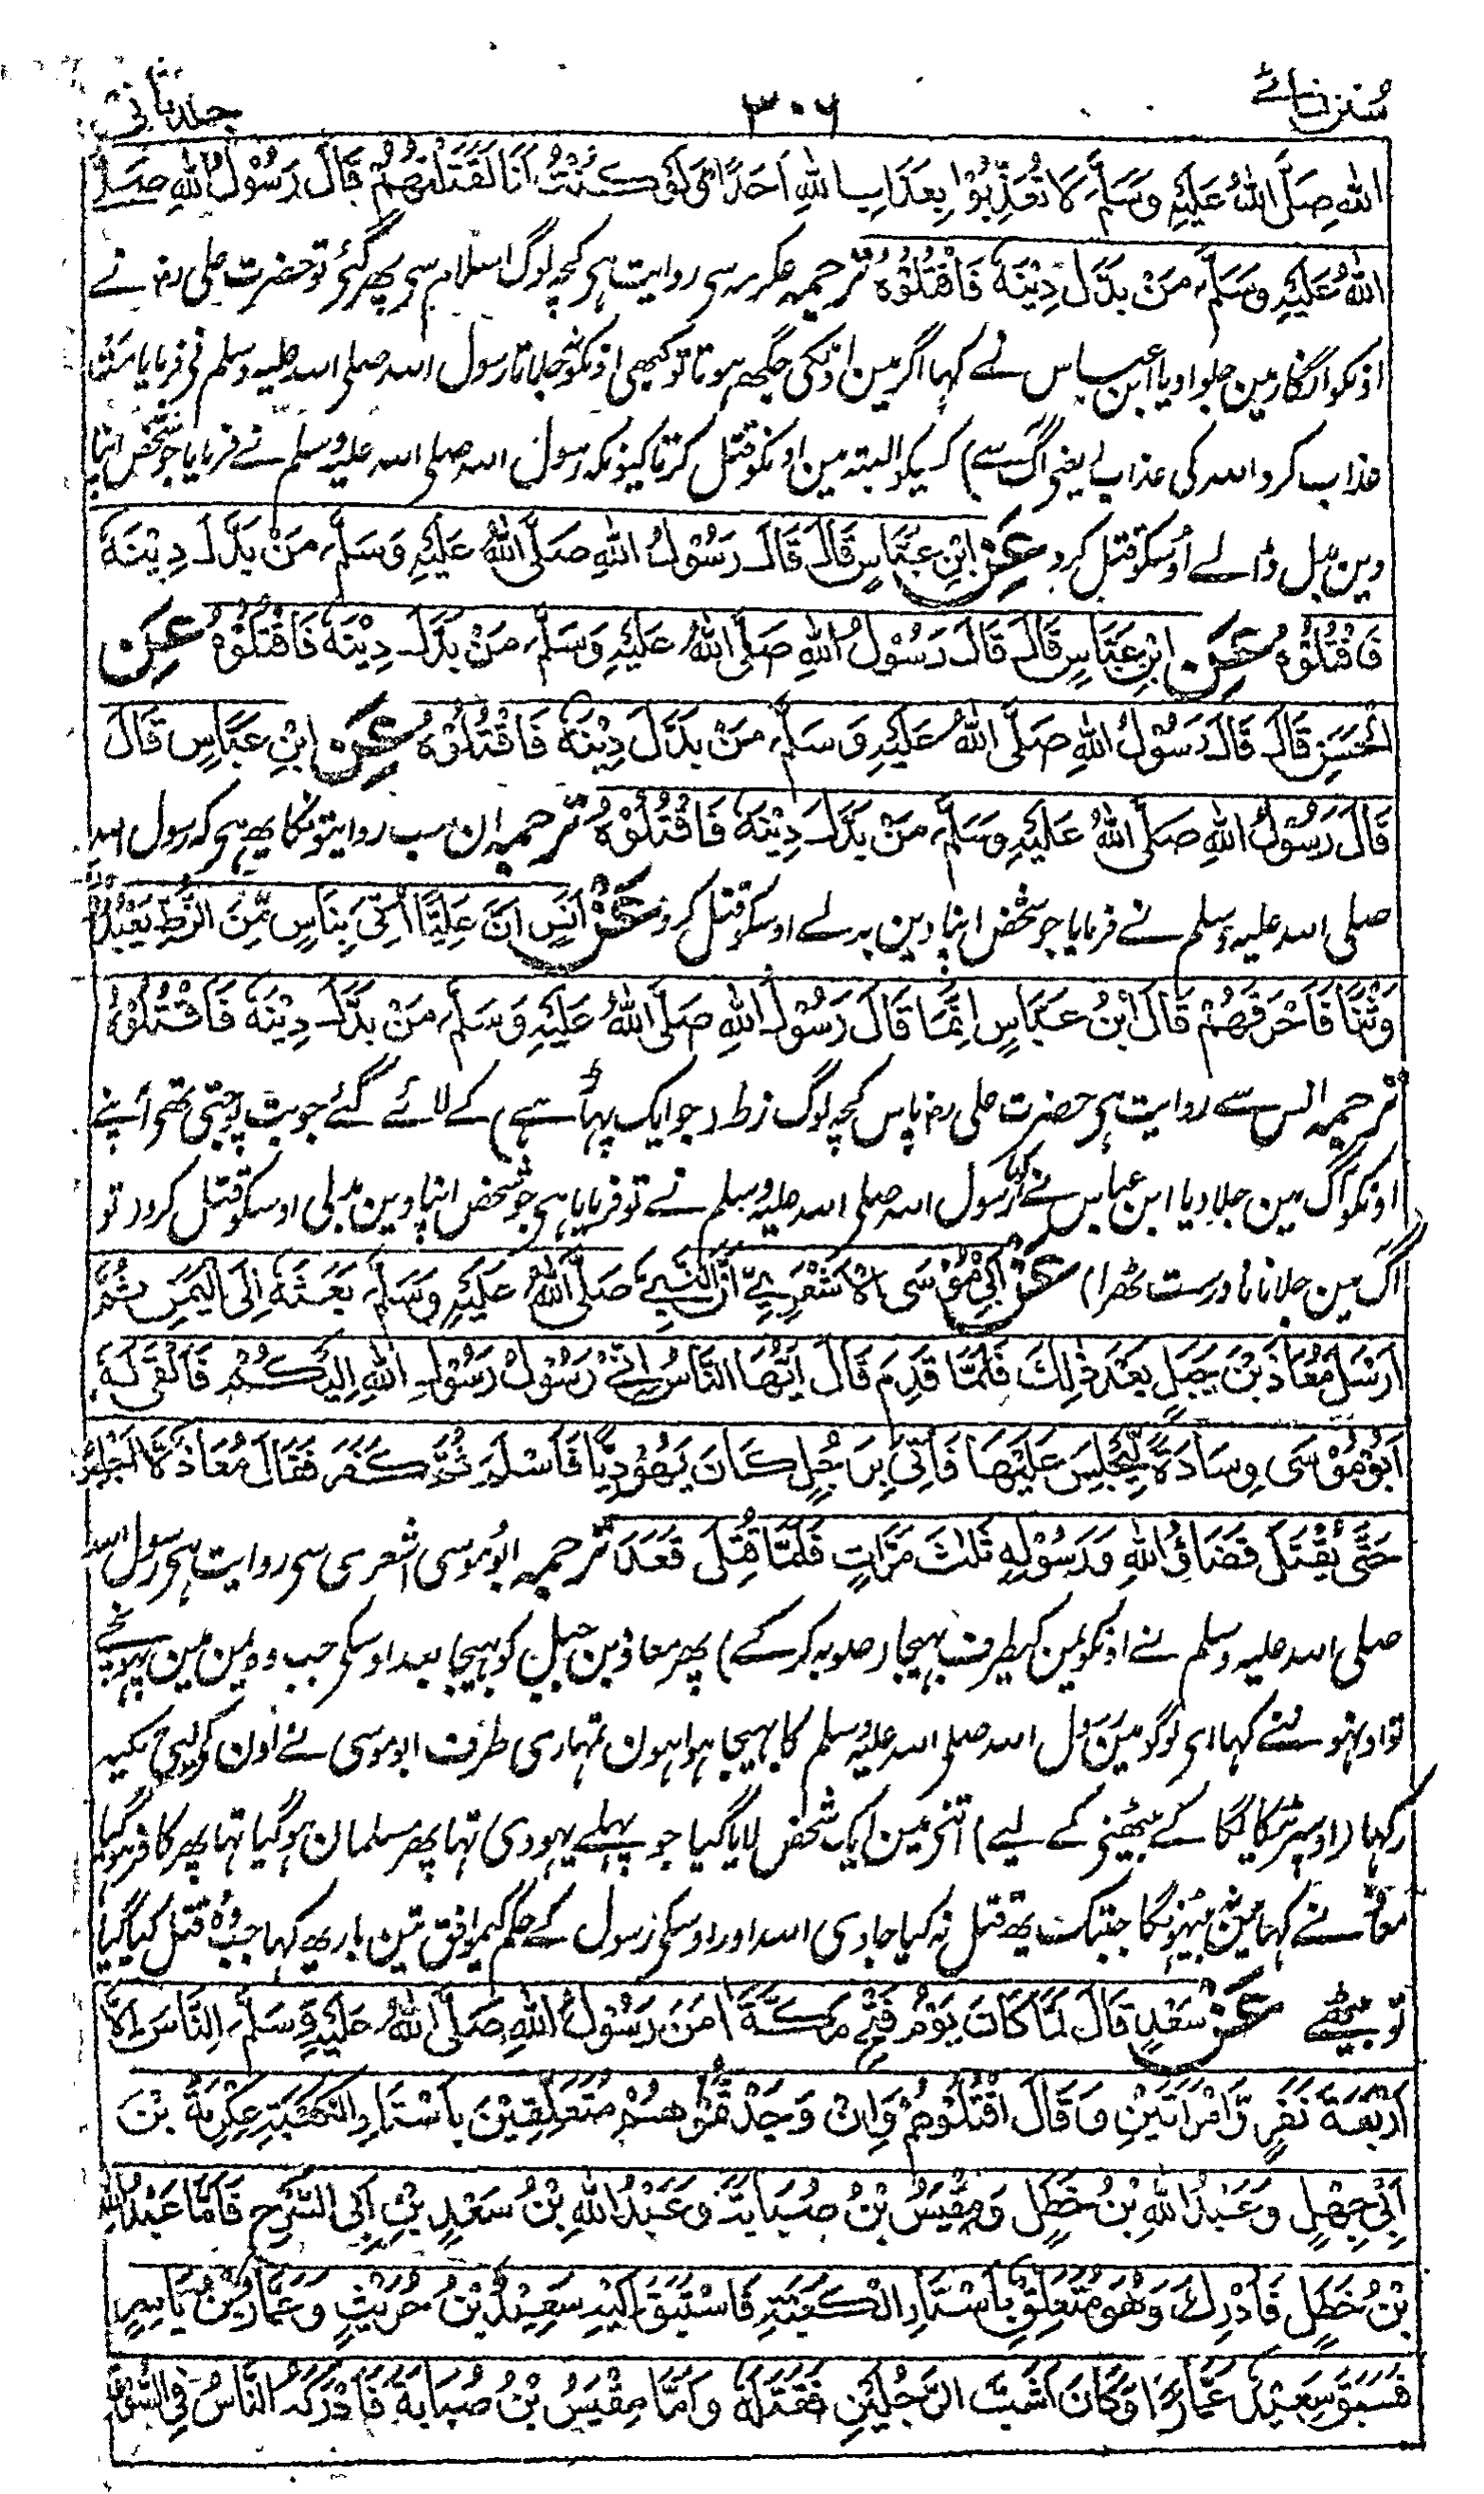 سنن نسائے ۳۰۶ جلد ثانی
اللهِ صَلَّى اللهُ عَلَيْهِ وَسَلَّمَ لَا تُعَذِّبُوْا بِعَذَابِ اللهِ اَحَدًا وَّلَوْ كُنْتُ اَنَا لَقَتَلْتُهُمْ قَالَ رَسُوْلُ اللهِ صَلَّى
اللهُ عَلَيْهِ وَسَلَّمَ مَنْ بَدَّلَ دِيْنَهٗ فَاقْتُلُوْهُ ترجمہ عکرمہ سی روایت ہی کچہ لوگ اسلام سی پھر گئی تو حضرت علی رضہ نے
اونکو انگار مین جلوادیا ابن عباس نے کہا اگر مین اونکی جگہہ ہوتا تو کبھی اونکو نجلاتا رسول اللہ صلی اللہ علیہ وسلم نی فرمایا مت
عذاب کرو اللہ کی عذاب (یعنی آگ سے) کسیکو البتہ مین اونکو قتل کرتا کیونکہ رسول اللہ صلی اللہ علیہ وسلم نے فرمایا جو شخص اپنا
دین بدل ڈالے اوسکو قتل کرو عَنِ ابْنِ عَبَّاسٍ قَالَ قَالَ رَسُوْلُ اللهِ صَلَّى اللهُ عَلَيْهِ وَسَلَّمَ مَنْ بَدَّلَ دِيْنَهٗ
فَاقْتُلُوْهُ عَنِ ابْنِ عَبَّاسٍ قَالَ قَالَ رَسُوْلُ اللهِ صَلَّى اللهُ عَلَيْهِ وَسَلَّمَ مَنْ بَدَّلَ دِيْنَهٗ فَاقْتُلُوْهُ عَنِ
الْحَسَنِ قَالَ قَالَ رَسُوْلُ اللهِ صَلَّى اللهُ عَلَيْهِ وَسَلَّمَ مَنْ بَدَّلَ دِيْنَهٗ فَاقْتُلُوْهُ عَنِ ابْنِ عَبَّاسٍ قَالَ
قَالَ رَسُوْلُ اللهِ صَلَّى اللهُ عَلَيْهِ وَسَلَّمَ مَنْ بَدَّلَ دِيْنَهٗ فَاقْتُلُوْهُ ترجمہ ان سب روایتونکا یہہ ہی کہ رسول اللہ
صلی اللہ علیہ وسلم نے فرمایا جو شخص اپنا دین بدلے اوسکو قتل کرو عَنْ اَنَسٍ اَنَّ عَلِيًّا اُتِيَ بِنَاسٍ مِّنَ الزُّطِّ يَعْبُدُوْنَ
وَثَنًا فَاَحْرَقَهُمْ قَالَ ابْنُ عَبَّاسٍ اِنَّمَا قَالَ رَسُوْلُ اللهِ صَلَّى اللهُ عَلَيْهِ وَسَلَّمَ مَنْ بَدَّلَ دِيْنَهٗ فَاقْتُلُوْهُ
ترجمہ انس سے روایت ہی حضرت علی رضہ پاس کچہ لوگ زط (جو ایک پہاڑ ہے) کے لائے گئے جو بت پوجتی تھی آپنے
اونکو آگ مین جلادیا ابن عباس نے کہا رسول اللہ صلی اللہ علیہ وسلم نے تو فرمایا ہی جو شخص اپنا دین بدلی اوسکو قتل کرو (تو
آگ مین جلانا نادرست ٹھرا) عَنْ اَبِيْ مُوْسَى الْاَشْعَرِيِّ اَنَّ النَّبِيَّ صَلَّى اللهُ عَلَيْهِ وَسَلَّمَ بَعَثَهٗ اِلَى الْيَمَنِ ثُمَّ
اَرْسَلَ مُعَاذَ بْنَ جَبَلٍ بَعْدَ ذٰلِكَ فَلَمَّا قَدِمَ قَالَ اَيُّهَا النَّاسُ اِنِّيْ رَسُوْلُ رَسُوْلِ اللهِ اِلَيْكُمْ فَاَلْقٰى لَهٗ
اَبُوْ مُوْسَى وِسَادَةً لِّيَجْلِسَ عَلَيْهَا فَاُتِيَ بِرَجُلٍ كَانَ يَهُوْدِيًّا فَاَسْلَمَ ثُمَّ كَفَرَ فَقَالَ مُعَاذٌ لَّا اَجْلِسُ
حَتّٰى يُقْتَلَ قَضَاءُ اللهِ وَرَسُوْلِهٖ ثَلٰثَ مَرَّاتٍ فَلَمَّا قُتِلَ قَعَدَ ترجمہ ابو موسی اشعری سی روایت ہی رسول اللہ
صلی اللہ علیہ وسلم نے اونکو یمن کیطرف بہیجا (صوبہ کرکے) پھر معاذ بن جبل کو بہیجا بعد اوسکی جب وہ یمن مین پہونچے
تو اونہونے کہا ای لوگو مین رسول اللہ صلی اللہ علیہ وسلم کا بہیجا ہوا ہون تمہاری طرف ابو موسی نے اون کو لیی تکیہ
رکہا (اوسپر ٹیکا لگا کے بیٹھنی کے لیے) اتنی مین ایک شخص لایا گیا جو پہلے یہودی تہا پھر مسلمان ہوگیا تہا پھر کافر ہوگیا
معاذ نے کہا مین نہ بیٹہونگا جبتک یہہ قتل نہ کیا جاوی اللہ اور اوسکی رسول کے حکم کیموافق تین بار یہہ کہا جب وہ قتل کیا گیا
تو بیٹھے عَنْ سَعْدٍ قَالَ لَمَّا كَانَ يَوْمُ فَتْحِ مَكَّةَ اٰمَنَ رَسُوْلُ اللهِ صَلَّى اللهُ عَلَيْهِ وَسَلَّمَ النَّاسَ اِلَّا
اَرْبَعَةَ نَفَرٍ وَّامْرَاَتَيْنِ وَقَالَ اقْتُلُوْهُمْ وَاِنْ وَجَدْتُّمُوْهُمْ مُتَعَلِّقِيْنَ بِاَسْتَارِ الْكَعْبَةِ عِكْرِمَةُ بْنُ
اَبِيْ جَهْلٍ وَعَبْدُ اللهِ بْنُ خَطَلٍ وَمِقْيَسُ بْنُ صُبَابَةَ وَعَبْدُ اللهِ بْنُ سَعْدِ بْنِ اَبِي السَّرْحِ فَاَمَّا عَبْدُ اللهِ
بْنُ خَطَلٍ فَاُدْرِكَ وَهُوَ مُتَعَلِّقٌ بِاَسْتَارِ الْكَعْبَةِ فَاسْتَبَقَ اِلَيْهِ سَعِيْدُ بْنُ حُرَيْثٍ وَعَمَّارُ بْنُ يَاسِرٍ
فَسَبَقَ سَعِيْدٌ عَمَّارًا وَّكَانَ اَشَبَّ الرَّجُلَيْنِ فَقَتَلَهٗ وَاَمَّا مِقْيَسُ بْنُ صُبَابَةَ فَاَدْرَكَهُ النَّاسُ فِي السُّوْقِ